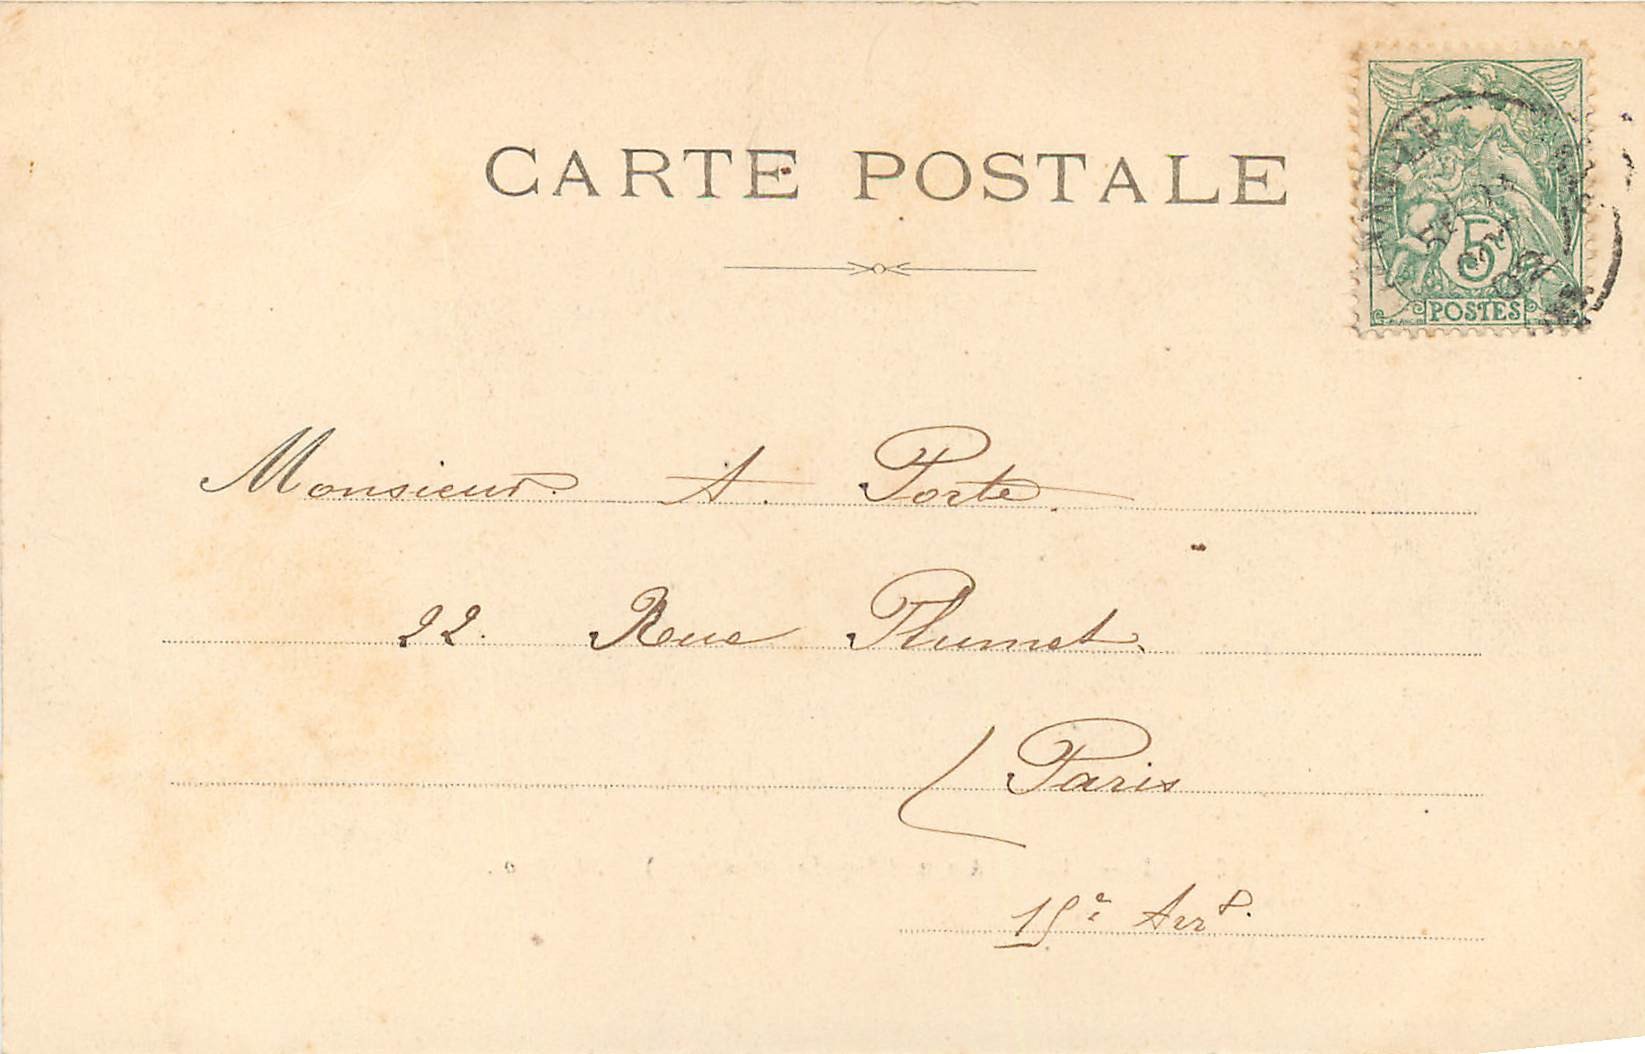 CARTE POSTALE
5
POSTES
Monsieur A. Porte
22. Rue Plumet.
Paris
15e Arrt.